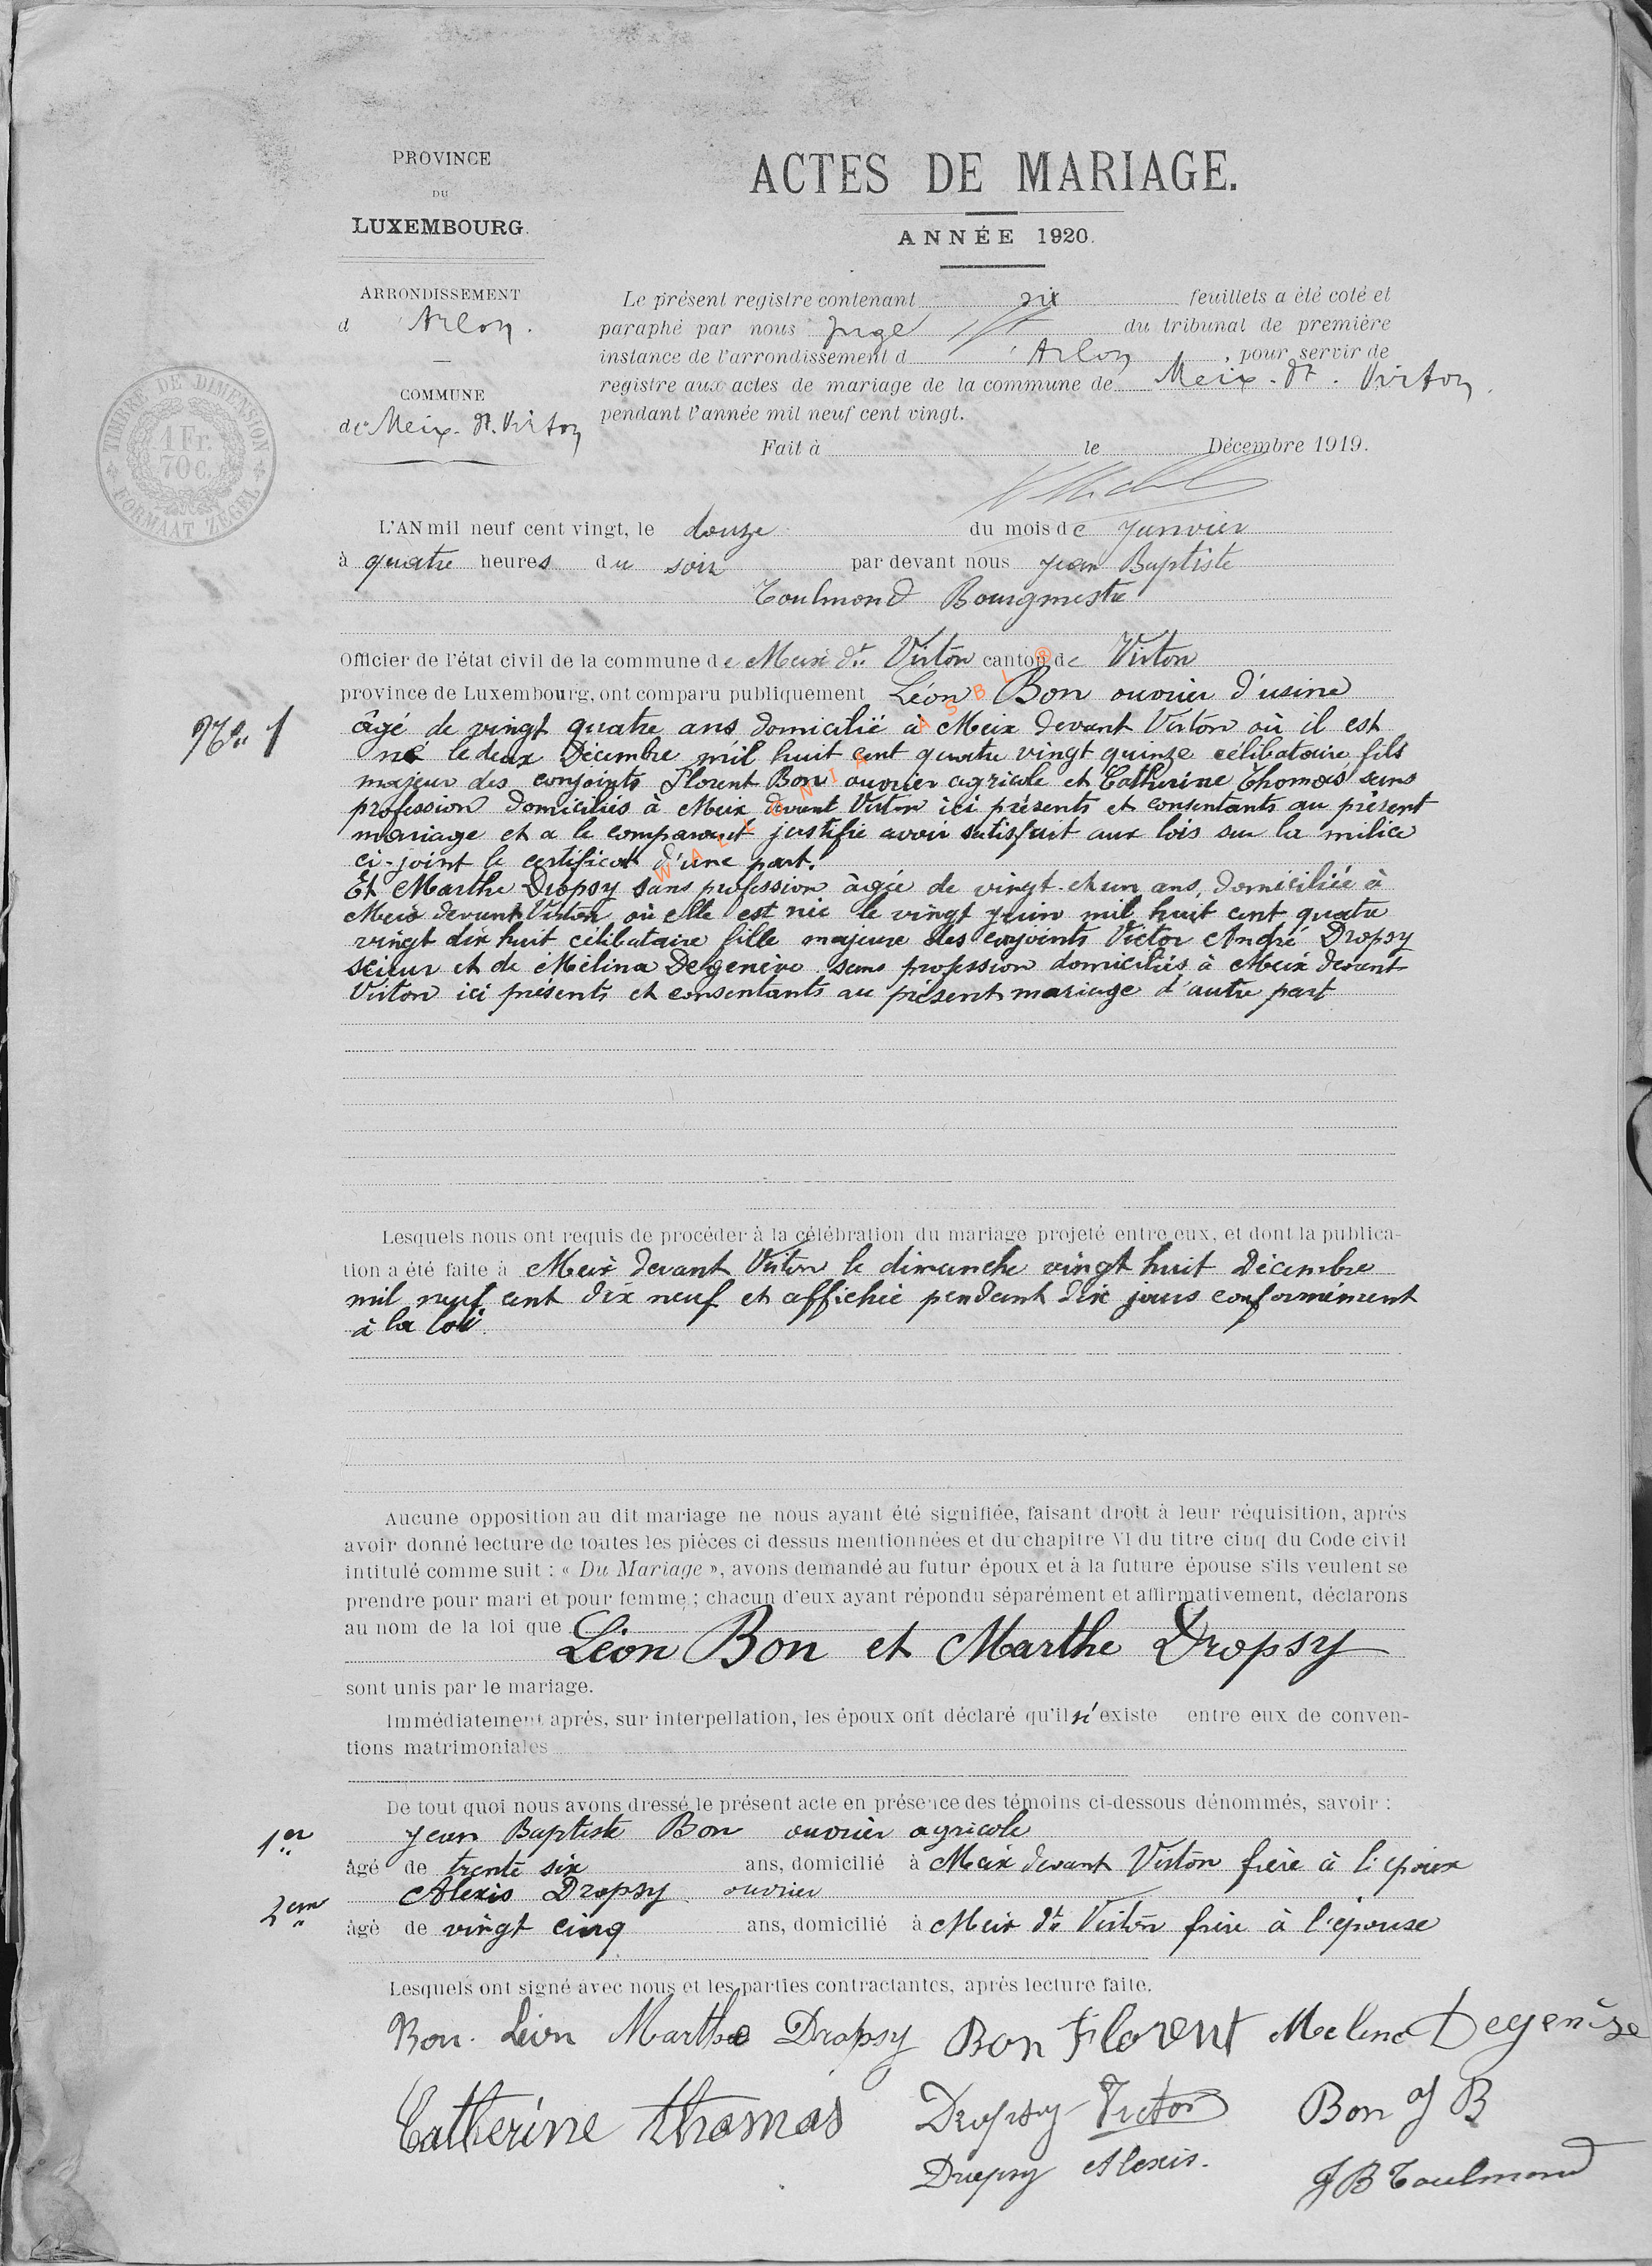 PROVINCE
DU
LUXEMBOURG.
ACTES DE MARIAGE.
ANNÉE 1920.
ARRONDISSEMENT
d Arlon.
COMMUNE
de Meix-dt.Virton
TIMBRE DE DIMENSION
1 Fr.
70 C.
FORMAAT ZEGEL
Le présent registre contenant six feuillets a été coté et
paraphé par nous Juge du tribunal de première
instance de l'arrondissement d'Arlon, pour servir de
registre aux actes de mariage de la commune de Meix-dt. Virton,
pendant l'année mil neuf cent vingt.
Fait à le Décembre 1919.
L'AN mil neuf cent vingt, le douze du mois de Janvier
à quatre heures du soir par devant nous Jean Baptiste
Toulmond Bourgmestre
Officier de l'état civil de la commune de Meix dt Virton canton de Virton
province de Luxembourg, ont comparu publiquement Léon Bon ouvrier d'usine
No 1
âgé de vingt quatre ans domicilié à Meix devant Virton où il est
né le deux Décembre mil huit cent quatre vingt quinze célibataire, fils
majeur des conjoints Florent Bon ouvrier agricole et Catherine Thomas sans
profession domiciliés à Meix devant Virton ici présents et consentants au présent
mariage et a le comparant justifié avoir satisfait aux lois sur la milice
ci-joint le certificat d'une part.
Et Marthe Dropsy sans profession âgée de vingt-et un ans, domiciliée à
Meix devant Virton où elle est née le vingt juin mil huit cent quatre
vingt dix huit célibataire fille majeure des conjoints Victor André Dropsy
scieur et de Mélina Degenève sans profession domiciliés à Meix devant
Virton ici présents et consentants au présent mariage d'autre part
WALLONIA ASBL ®
Lesquels nous ont requis de procéder à la célébration du mariage projeté entre eux, et dont la publica-
tion a été faite à Meix devant Virton le dimanche vingt huit Décembre
mil neuf cent dix neuf et affichée pendant dix jours conformément
à la loi.
Aucune opposition au dit mariage ne nous ayant été signifiée, faisant droit à leur réquisition, après
avoir donné lecture de toutes les pièces ci dessus mentionnées et du chapitre VI du titre cinq du Code civil
intitulé comme suit : « Du Mariage », avons demandé au futur époux et à la future épouse s'ils veulent se
prendre pour mari et pour femme ; chacun d'eux ayant répondu séparément et affirmativement, déclarons
au nom de la loi que
Léon Bon et Marthe Dropsy
sont unis par le mariage.
Immédiatement après, sur interpellation, les époux ont déclaré qu'il n'existe entre eux de conven-
tions matrimoniales
De tout quoi nous avons dressé le présent acte en présence des témoins ci-dessous dénommés, savoir :
1er Jean Baptiste Bon ouvrier agricole
âgé de trente six ans, domicilié à Meix devant Virton frère à l'époux
2em Alexis Dropsy ouvrier
âgé de vingt cinq ans, domicilié à Meix dt Virton frère à l'épouse
Lesquels ont signé avec nous et les parties contractantes, après lecture faite.
Bon. Léon Marthe Dropsy Bon Florent Melina Degenève
Catherine thomas Dropsy Victor Bon J B
Dropsy Alexis. J B Toulmond